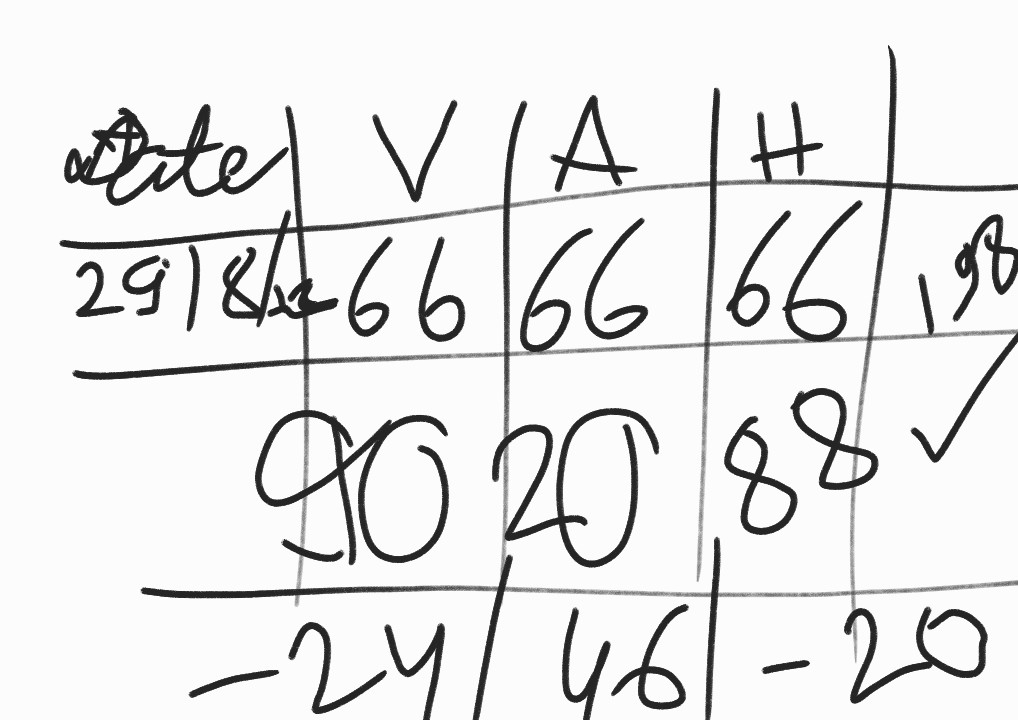 Date V A H
29/8/22 66 66 66 198
90 20 88 ✓
-24 46 -20